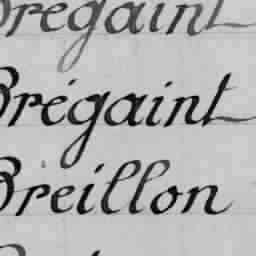 Brégaint
Brégaint
Breillon